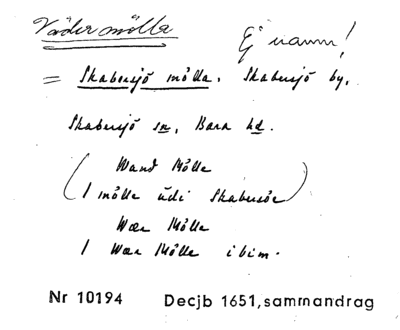 Vädermölla Ej namn!
= Skabersjö mölla. Skabersjö by,
Skabersjö sn, Bara hd.
(Wand Mölle
1 mölle udi Skabersöe)
Wær Mölle
1 Wær Mölle ibim.
Nr 10194 Decjb 1651, sammandrag